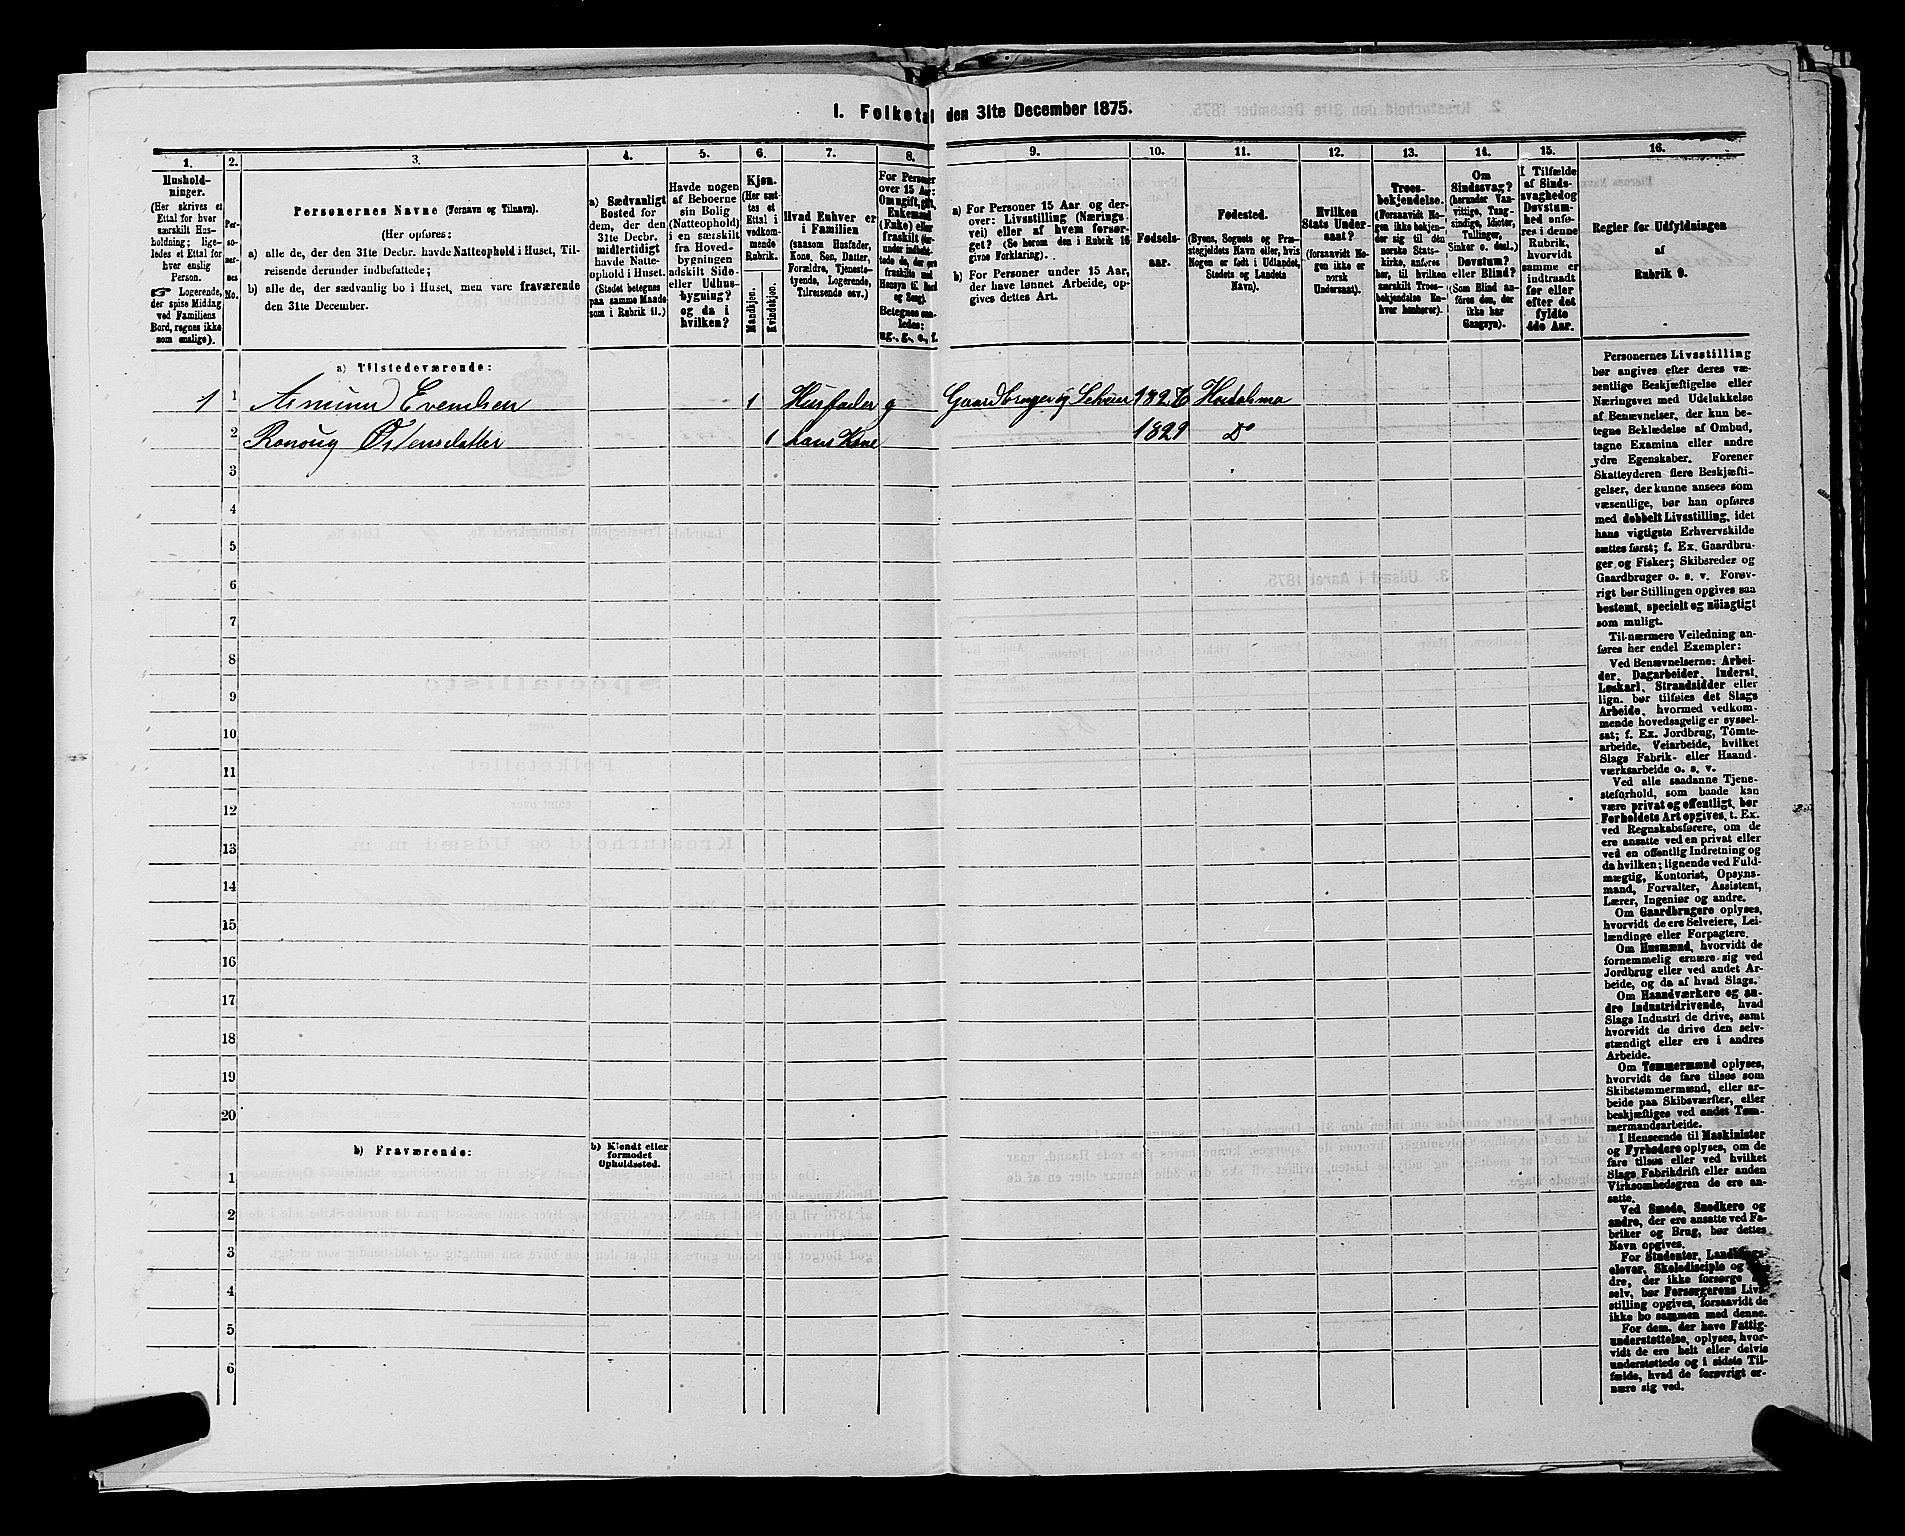 1. Folketal den 31te December 1875.
1. 2. 3. 4. 5. 6. 7. 8. 9. 10. 11. 12. 13. 14. 15. 16.
Hushold-
ninger.
(Her skrives et
Ettal for hver
særskilt Hus-
holdning; lige-
ledes et Ettal for
hver enslig
Person.
☞ Logerende,
der spise Middag
ved Familiens
Bord, regnes ikke
som enslige).
Per-
so-
ner-
nes
No.
Personernes Navne (Fornavn og Tilnavn).
(Her opføres:
a) alle de, der den 31te Decbr. havde Natteophold i Huset, Til-
reisende derunder indbefattede;
b) alle de, der sædvanlig bo i Huset, men vare fraværende
den 31te December.
a) Sædvanligt
Bosted for
dem, der den
31te Decbr.
midlertidigt
havde Natte-
ophold i Huset.
(Stedet betegnes
paa samme Maade
som i Rubrik 11.)
Havde nogen
af Beboerne
sin Bolig
(Natteophold)
i en særskilt
fra Hoved-
bygningen
adskilt Side-
eller Udhus-
bygning?
og da i
hvilken?
Kjøn.
(Her sæt-
tes et
Ettal i
vedkom-
mende
Rubrik.
Mandkjøn.
Kvindekjøn.
Hvad Enhver er
i Familien
(saasom Husfader,
Kone, Søn, Datter,
Forældre, Tjeneste-
tyende, Logerende,
Tilreisende osv.)
For Personer
over 15 Aar:
Om ugift, gift,
Enkemand
(Enke) eller
fraskilt
Betegnes saa-
ledes:
ug., g., e., f.
a) For Personer 15 Aar og der-
over: Livsstilling (Nærings-
vei) eller af hvem forsør-
get? (Se herom den i Rubrik 16
givne Forklaring).
b) For Personer under 15 Aar,
der have lønnet Arbeide, op-
gives dettes Art.
Fødsels-
aar.
Fødested.
(Byens, Sognets og Præ-
stegjeldets Navn eller, hvis
Nogen er født i Udlandet,
Stedets og Landets
Navn).
Hvilken
Stats Under-
saat?
(forsaavidt No-
gen ikke er
norsk
Undersaat).
Troes-
bekjendelse.
(Forsaavidt No-
gen ikke bekjen-
der sig til den
norske Stats-
kirke, anføres
her, til hvilken
særskilt Troes-
bekjendelse En-
hver henhører).
Om
Sindssvag?
(herunder Van-
vittige, Tung-
sindige, Idioter,
Tullinger,
Sinker o. desl.)
Døvstum?
eller Blind?
(Som Blind an-
føres den, der
ikke har
Gangsyn).
I Tilfælde
af Sinds-
svaghed og
Døvstum-
hed anfø-
res i denne
Rubrik,
hvorvidt
samme er
indtraadt
før eller
efter det
fyldte
4de Aar.
Regler for Udfyldningen
af
Rubrik 9.
a) Tilstedeværende:
1 1 Asmund Evendsen 1 Husfader g Gaardbruger og Selveier
2 Ronoug Østensdatter 1 hans Kone 1829 Do
3
4
5
6
7
8
9
10
11
12
13
14
15
16
17
18
19
20
b) Fraværende: b) Kjendt eller
formodet
Opholdssted.
1
2
3
4
5
6
Personernes Livsstilling
bør angives efter deres væ-
sentlige Beskjæftigelse eller
Næringsvei med Udelukkelse
af Benævnelser, der kun be-
tegne Beklædelse af Ombud,
tagne Examina eller andre
ydre Egenskaber. Forener
Skatteyderen flere Beskjæfti-
gelser, der kunne ansees som
væsentlige, bør han opføres
med dobbelt Livsstilling, idet
hans vigtigste Erhvervskilde
sættes først; f. Ex. Gaardbru-
ger og Fisker; Skibsreder og
Gaardbruger o. s. v. Forøv-
rigt bør Stillingen opgives saa
bestemt, specielt og nöiagtigt
som muligt.
Til nærmere Veiledning an-
føres her endel Exempler:
Ved Benævnelserne: Arbei-
der, Dagarbeider, Inderst,
Løskarl, Strandsidder eller
lign. bør tilføies det Slags
Arbeide, hvormed vedkom-
mende hovedsagelig er syssel-
sat; f. Ex. Jordbrug, Tömte-
arbeide, Veiarbeide, hvilket
Slags Fabrik- eller Haand-
værksarbeide o. s. v.
Ved alle saadanne Tjene-
steforhold, som baade kan
være privat og offentligt, bør
Forholdets Art opgives, t. Ex.
ved Regnskabsførere, om de
ere ansatte ved en privat eller
ved en offentlig Indretning og
da hvilken; lignende ved Fuld-
mægtig, Kontorist, Opsyns-
mand, Forvalter, Assistent,
Lærer, Ingeniør og andre.
Om Gaardbrugere oplyses,
hvorvidt de ere Selveiere, Lei-
lændinge eller Forpagtere.
Om Husmænd, hvorvidt de
fornemmelig ernære sig ved
Jordbrug eller ved andet Ar-
beide, og da af hvad Slags.
Om Haandværkere og an-
dre Industridrivende, hvad
Slags Industri de drive, samt
hvorvidt de drive den selv-
stændigt eller ere i andres
Arbeide.
Om Tømmermænd oplyses,
hvorvidt de fare tilsøs som
Skibstømmermænd, eller ar-
beide paa Skibsværfter, eller
beskjæftiges ved andet Tøm-
mermandsarbeide.
I Henseende til Maskinister
og Fyrbødere oplyses, om de
fare tilsøs eller ved hvilket
Slags Fabrikdrift eller anden
Virksomhedsgren de ere an-
satte.
Ved Smede, Snedkere og
andre, der ere ansatte ved Fa-
briker og Brug, bør dettes
Navn opgives.
For Studenter, Landbrugs-
elever, Skoledisciple og
dre, der ikke forsørge
selv, bør Forsørgerens Liv-
stilling opgives, forsaavidt de
ikke bo sammen med denne.
For dem, der have Fattig-
understøttelse, oplyses, hvor-
vidt de ere helt eller delvis
understøttede og i sidste Til-
fælde, hvad de forøvrigt er-
nære sig ved.